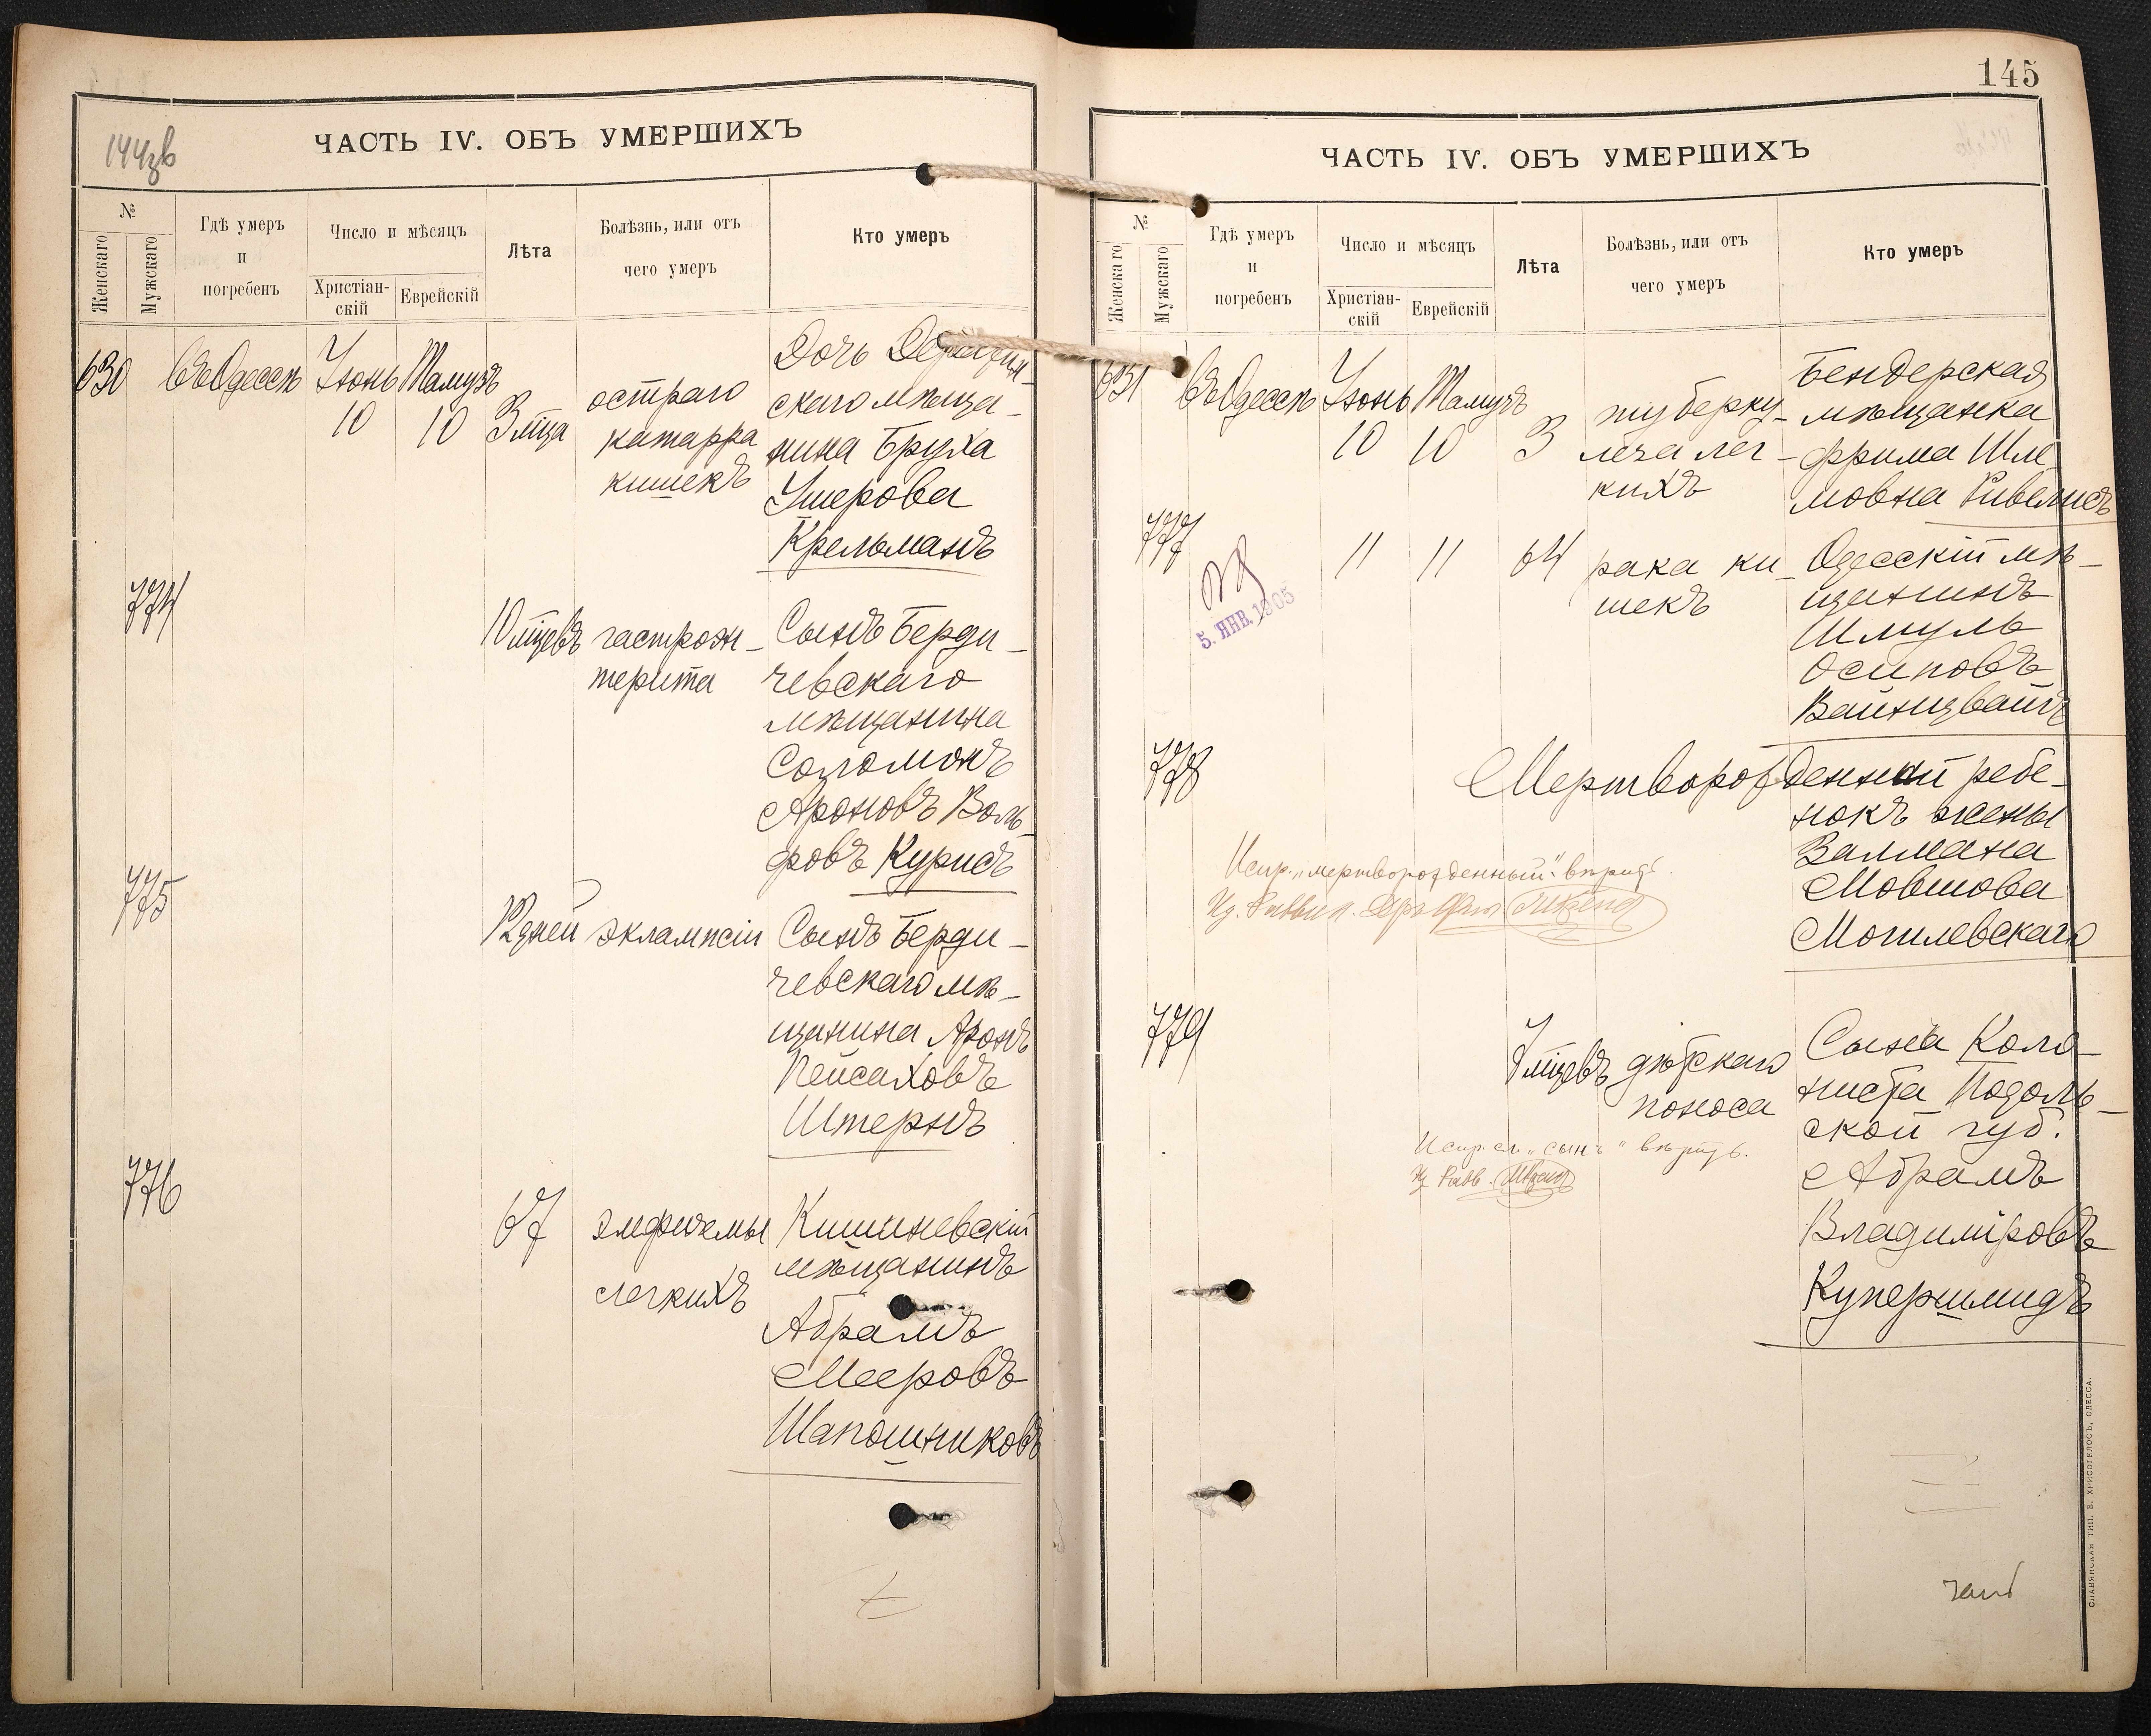 144 зв
ЧАСТЬ IV. ОБЪ УМЕРШИХЪ
№
Женскаго
Мужскаго
Гдѣ умеръ
и
погребенъ
Число и мѣсяцъ
Христіан-
скій
Еврейскій
Лѣта
Болѣзнь, или отъ
чего умеръ
Кто умеръ
630
въ Одессѣ
Іюнь
10
Тамузъ
10
3 мца
остраго
катарра
кишекъ
Дочь
скаго мѣща-
нина Бруха
Ушерова
Крельманъ
774
10 мцевъ
гастроэн-
терита
Сынъ Берди-
чевскаго
мѣщанина
Соломонъ
Ароновъ Воль-
фовъ Курисъ
775
12 дней
эклампсіи
Сынъ Берди-
чевскаго мѣ-
щанина Аронъ
Пейсаховъ
Штернъ
776
67
эмфиземы
легкихъ
Кишиневскій
мѣщанинъ
Абрамъ
Мееровъ
Шапошниковъ
145
ЧАСТЬ IV. ОБЪ УМЕРШИХЪ
№
Женскаго
Мужскаго
Гдѣ умеръ
и
погребенъ
Число и мѣсяцъ
Христіан-
скій
Еврейскій
Лѣта
Болѣзнь, или отъ
чего умеръ
Кто умеръ
631
въ Одессѣ
Іюнь
10
Тамузъ
10
3
туберку-
леза лег-
кихъ
Бендерская
мѣщанка
Фрима Шле
мовна Ривелисъ
777
5. ЯНВ. 1905
11
11
64
рака ки-
шекъ
Одесскій мѣ-
щанинъ
Шмуль
Осиповъ
Вайнцвайгъ
778
Мертворожденный ребе-
нокъ жены
Залмана
Мовшова
Могилевскаго
Испр. „мертворожденный" вѣрить.
779
7 мцевъ
дѣтскаго
поноса
Сына Коло-
ниста Подоль-
ской губ.
Абрамъ
Владиміровъ
Купершмидъ
Испр. сл. „сынъ" вѣрить.
СЛАВЯНСКАЯ ТИП. Е. ХРИСОГЕЛОСЪ, ОДЕССА.